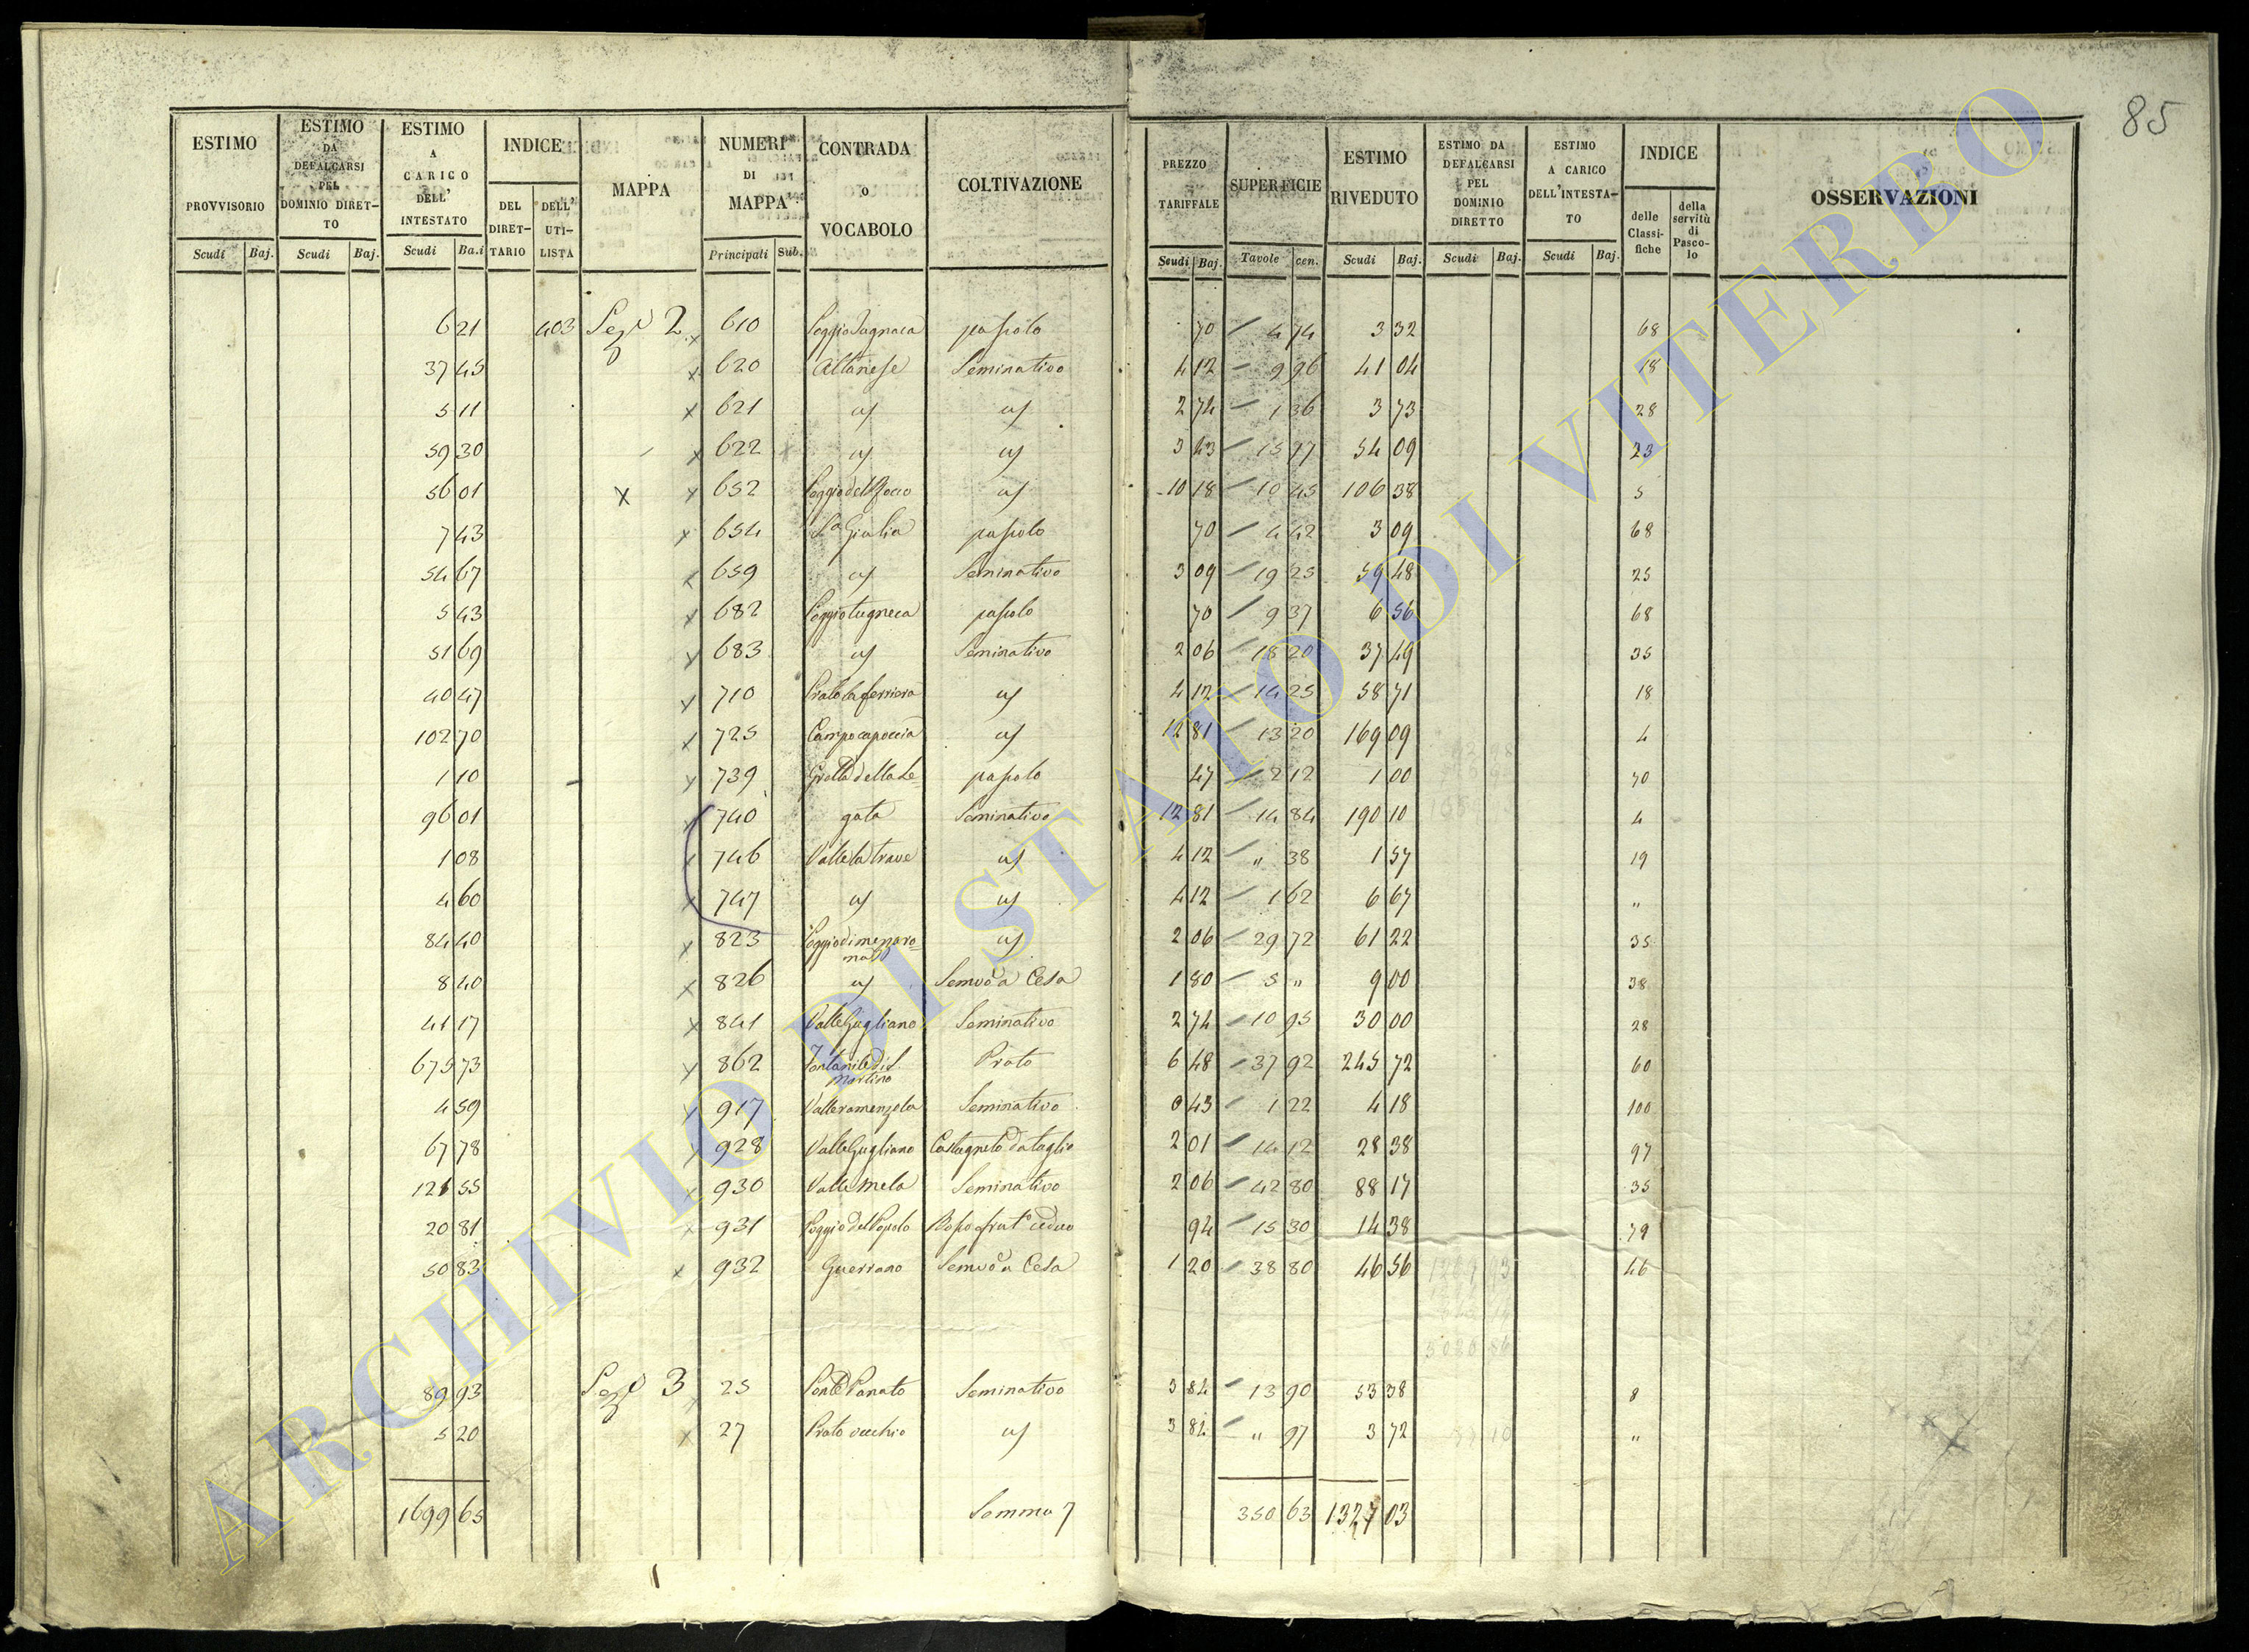 85
ESTIMO PROVVISORIO Scudi Baj.
ESTIMO DA DEFALCARSI PEL DOMINIO DIRETTO Scudi Baj.
ESTIMO A CARICO DELL' INTESTATO Scudi Ba.i
INDICE DEL DIRETTARIO DELL' UTILISTA
MAPPA
NUMERI DI MAPPA Principali Sub.
CONTRADA o VOCABOLO
COLTIVAZIONE
PREZZO TARIFFALE Scudi Baj.
SUPERFICIE Tavole cen.
ESTIMO RIVEDUTO Scudi Baj.
ESTIMO DA DEFALCARSI PEL DOMINIO DIRETTO Scudi Baj.
ESTIMO A CARICO DELL'INTESTATO Scudi Baj.
INDICE delle Classifiche della servitù di Pascolo
OSSERVAZIONI
6 21 403 Sez.e 2 610 pascolo 70 4 74 3 32 68
37 45 620 Altanese Seminativo 4 12 9 96 41 04 18
5 11 621 " " 2 74 1 36 3 73 28
59 30 622 " " 3 43 15 77 54 09 23
56 01 652 " 10 18 10 45 106 38 5
7 43 654 S.a Giulia pascolo 70 4 42 3 09 68
54 67 659 " Seminativo 3 09 19 25 59 48 25
5 43 682 Poggio tugneca pascolo 70 9 37 6 56 68
51 69 683 " Seminativo 2 06 18 20 37 49 35
40 47 710 Prato la ferriera " 4 12 14 25 58 71 18
102 70 725 Campo capoccia " 12 81 13 20 169 09 4
1 10 739 Grotta della Le= pascolo 47 2 12 1 00 70
96 01 740 gata Seminativo 12 81 14 84 190 10 4
1 08 746 Valle la trave " 4 12 " 38 1 57 19
4 60 747 " " 4 12 1 62 6 67 "
84 40 823 " 2 06 29 72 61 22 35
8 40 826 " Semvo a Cesa 1 80 5 " 9 00 38
41 17 841 Valle Gugliano Seminativo 2 74 10 95 30 00 28
675 73 862 Fontanile di S. Martino Prato 6 48 37 92 245 72 60
4 59 917 Valleramenzola Seminativo 43 1 22 4 18 100
67 78 928 Valle Gugliano Castagneto da taglio 2 01 14 12 28 38 97
121 55 930 Valle Mela Seminativo 2 06 42 80 88 17 35
20 81 931 Poggio del Popolo ceduo 94 15 30 14 38 79
50 83 932 Guerrano Semvo a Cesa 1 20 38 80 46 56 46
89 93 Sez.e 3 25 Ponte Panato Seminativo 3 84 13 90 53 38 8
5 20 27 Prato vecchio " 3 84 " 97 3 72 "
1699 65 Somma 350 63 1327 03
ARCHIVIO DI STATO DI VITERBO